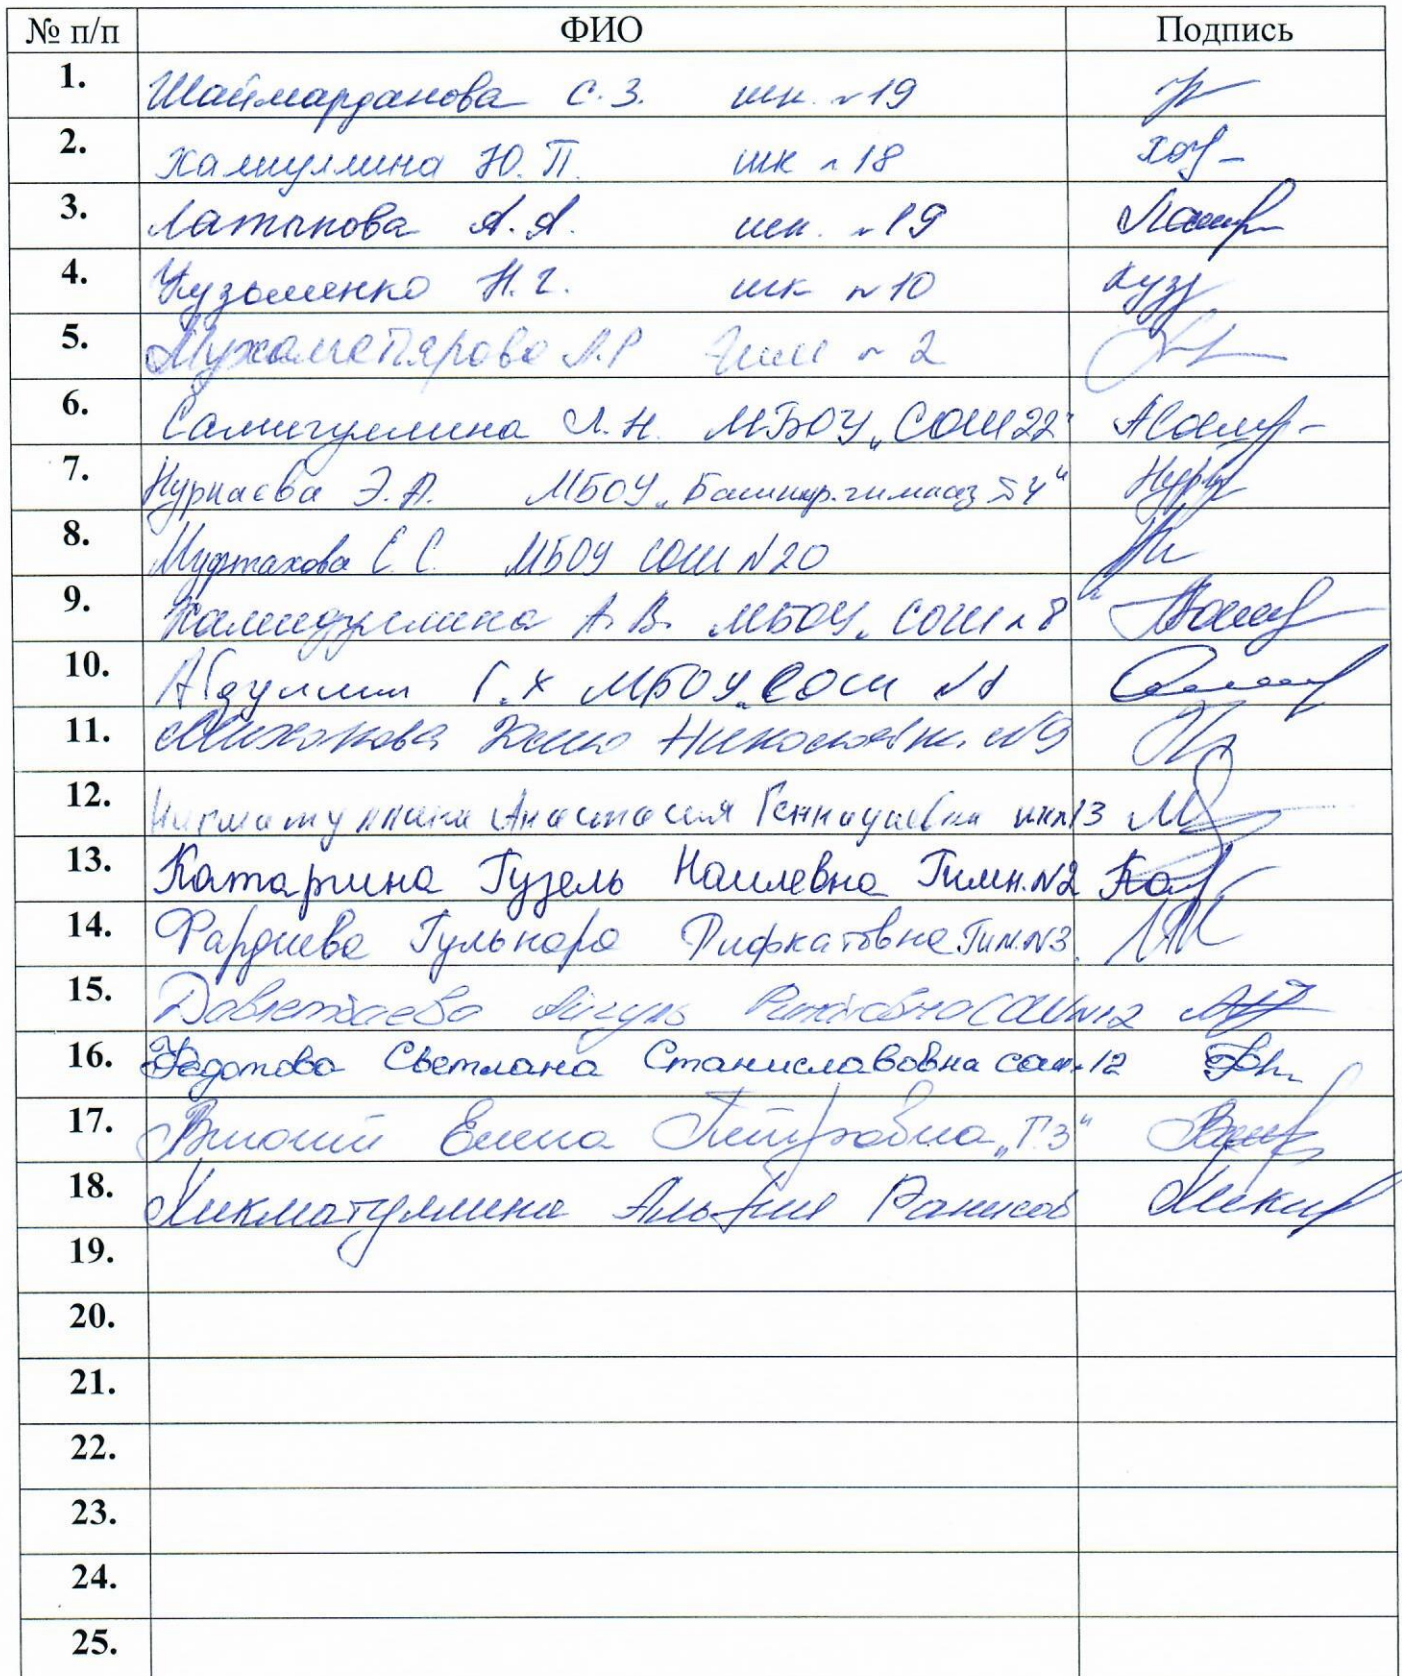 № п/п ФИО Подпись
1. Шаймарданова С.З. шк. №19
2. Хамиуллина Ю.П. шк №18
3. Латыпова А.А. шк. №19
4. Кузьменко Н.Г. шк №10 Кузу
5. Мухаметярова Л.Р Гим №2
6. Самигуллина Л.Н. МБОУ „СОШ 22"
7. Нурпаева Э.А. МБОУ „Башкир. гимназ №4"
8. Муртахова С.С. МБОУ СОШ N20
9. А.В. МБОУ „СОШ №8
10. Абдуллин Г.Х МБОУ „СОШ №1
11. №9
12. Нигматуллина Анастасия Геннадьевна шк №13
13. Катарина Гузель Наилевна Гимн. №2
14. Фардиева Гульнара Рифкатовна Гим. №3
15. Давлетбаева Айгуль СОШ №12
16. Федотова Светлана Станиславовна сош №12
17. Елена Петровна „Г.3"
18. Хикматуллина Альфия Ранисов
19.
20.
21.
22.
23.
24.
25.